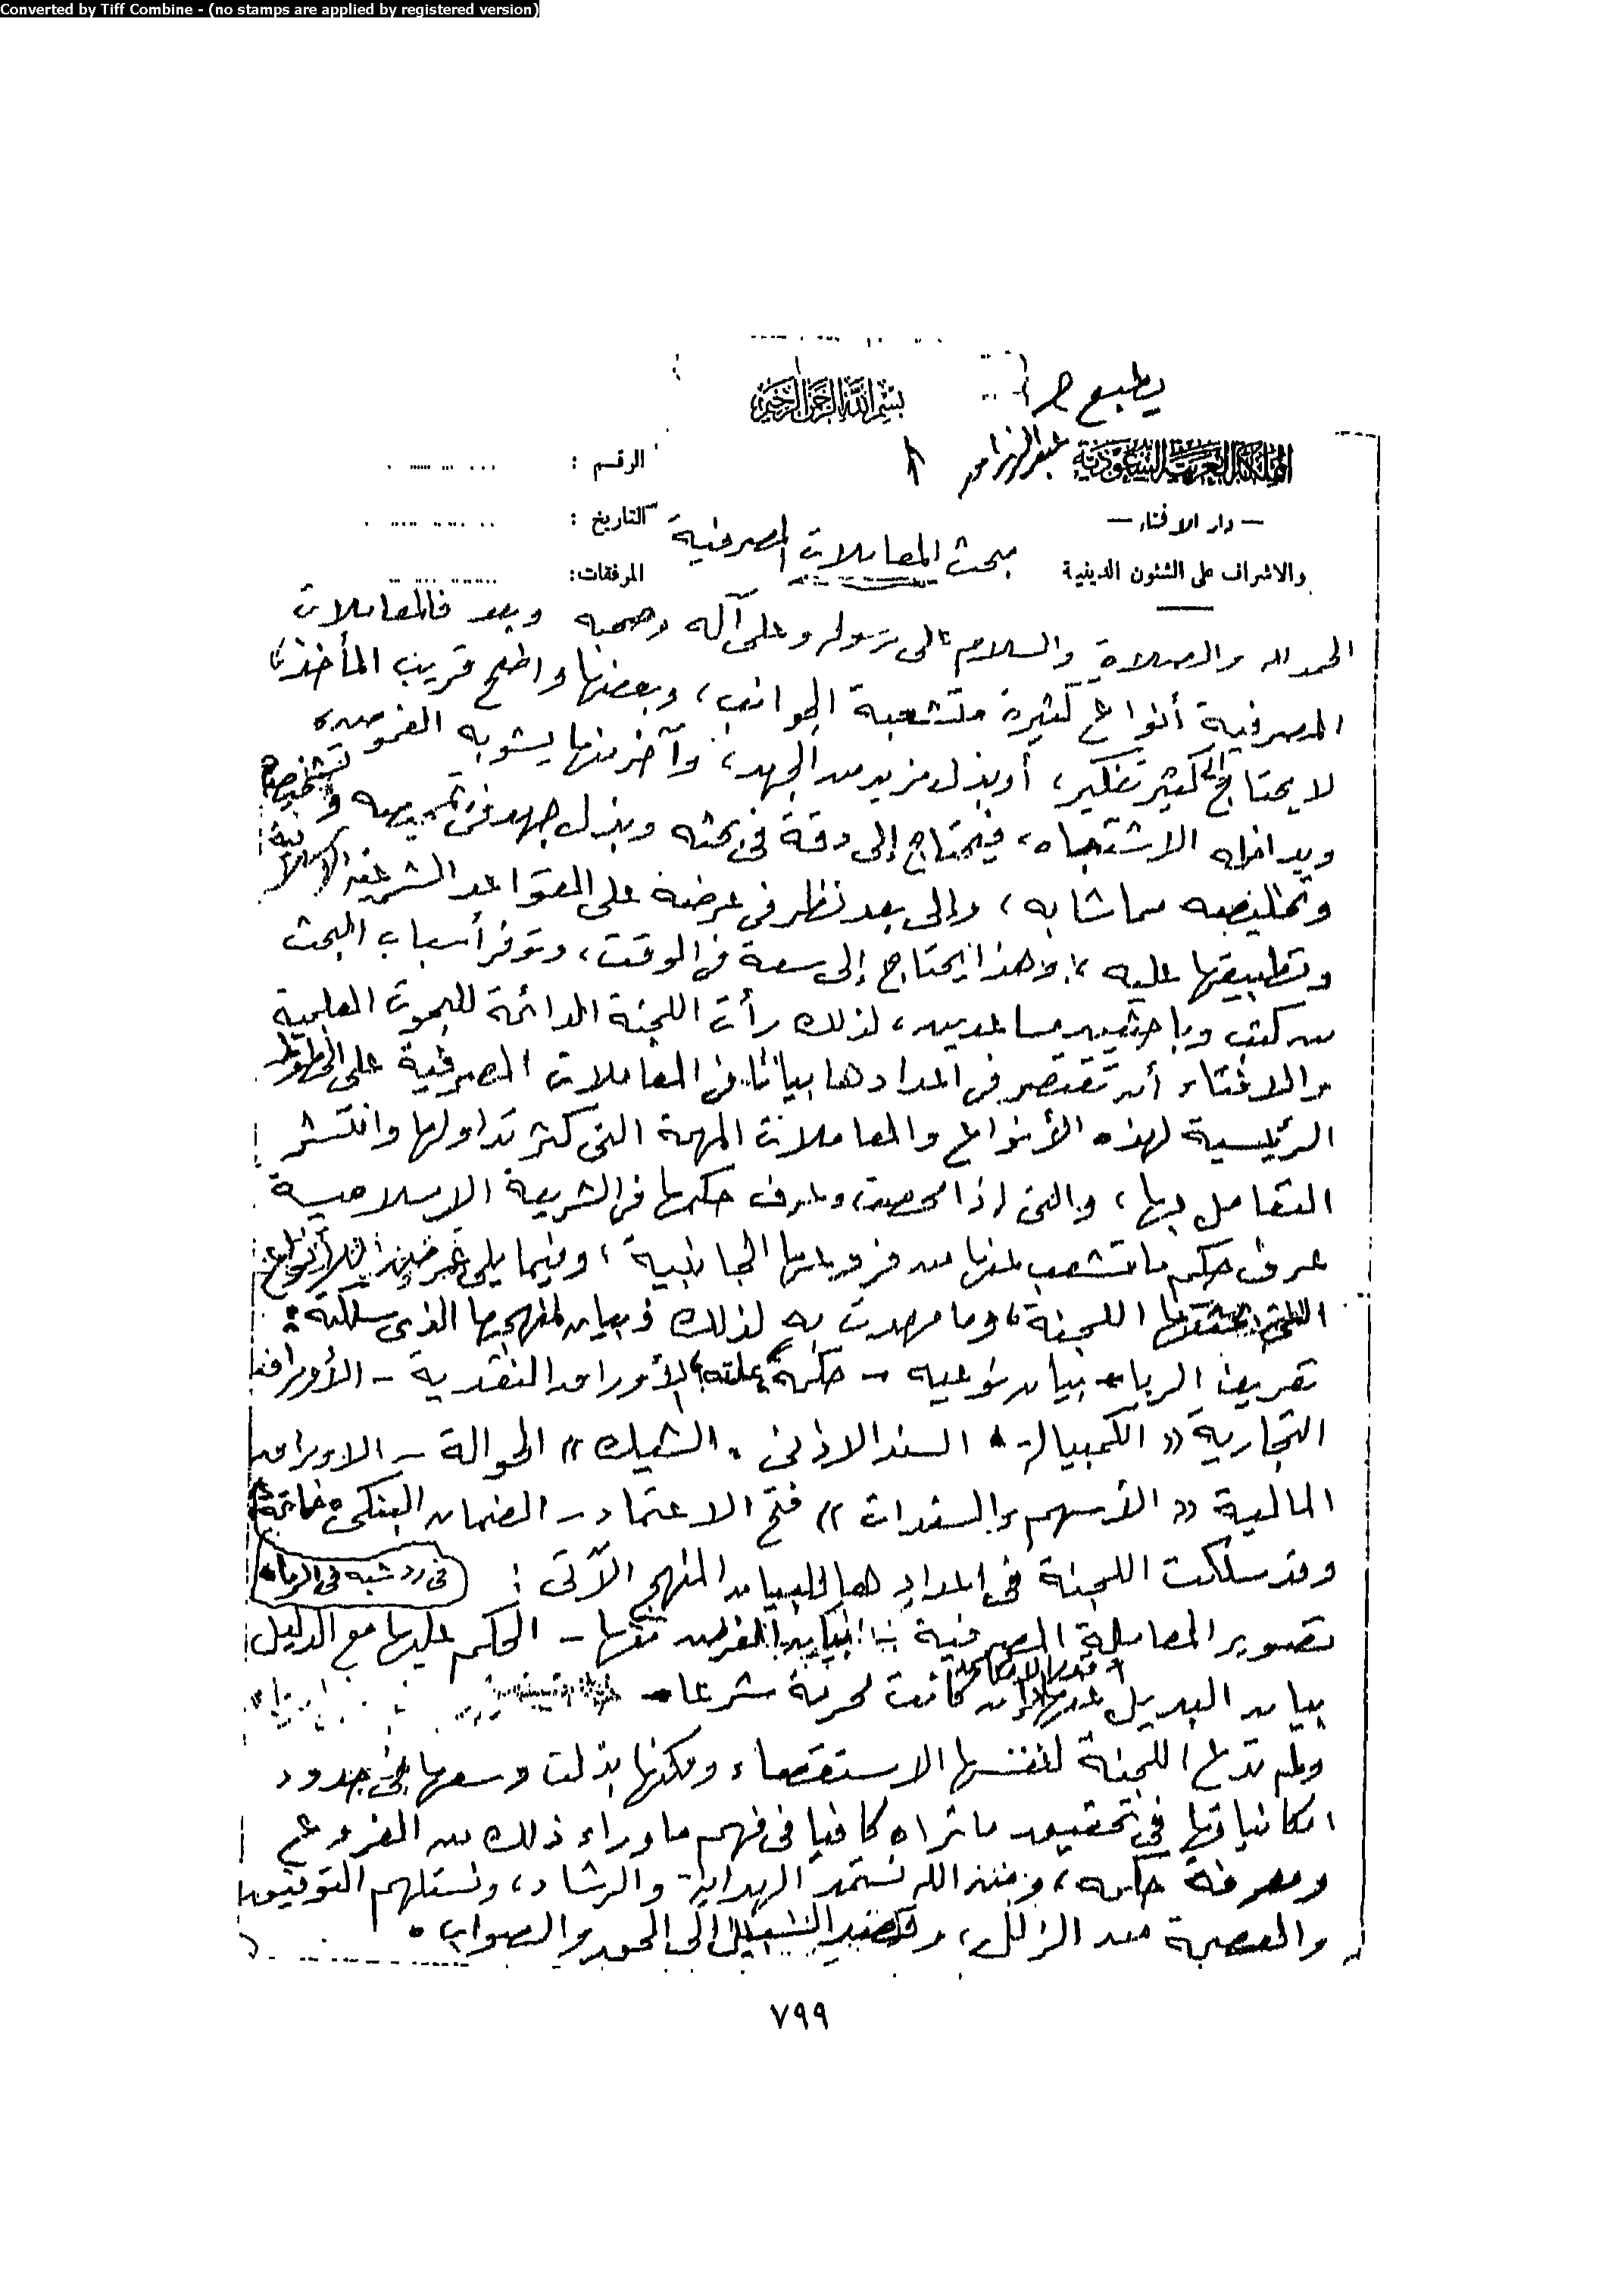 Converted by Tiff Combine - (no stamps are applied by registered version)
يطبع
بسم الله الرحمن الرحيم
المملكة العربية السعودية
الرقم :
— دار الافتاء —
التاريخ :
والاشراف على الشئون الدينية
المرفقات:
بحث المعاملات المصرفية
الحمد لله والصلاة والسلام على رسوله وعلى آله وصحبه وبعد فالمعاملات
المصرفية أنواع كثيرة متشعبة الجوانب، وبعضها واضح قريب المأخذ،
لا يحتاج إلى كثير تفكير، أو بذل مزيد من الجهد، وآخر منها يشوبه الغموض،
ويداخله الاشتباه، فيحتاج إلى دقة في بحثه وبذل جهد في تمييزه وتشخيصه
وتخليصه مما شابه، وإلى بعد نظر في عرضه على القواعد الشرعية الإسلامية
وتطبيقها عليه، وهذا يحتاج إلى سعة في الوقت، وتوفر أسباب البحث
من كتب وباحثين مساعدين، لذلك رأت اللجنة الدائمة للبحوث العلمية
والافتاء أن تقتصر في اعدادها بيانا في المعاملات المصرفية على الخطوط
الرئيسية لهذه الأنواع والمعاملات المهمة التي كثر تداولها وانتشر
التعامل بها، والتي إذا محصت وعرف حكمها في الشريعة الاسلامية
عرف حكم ما تشعب عنها من فروعها الجانبية، وفيما يلي عرض للأنواع
التي بحثتها اللجنة، وما مهدت به لذلك وبيان لمنهجها الذي سلكته :
تعريف الربا - بيان نوعيه - حكمة علته، الأوراق النقدية - الأوراق
التجارية « الكمبيالة، السند الاذني، الشيك » الحوالة - الاوراق
المالية « الأسهم والسندات » فتح الاعتماد - الضمان البنكي، خاتمة
في رد شبه في الربا.
وقد سلكت اللجنة في اعداد هذا البيان المنهج الآتي :
تصوير المعاملة المصرفية - بيان الغرض منها - الحكم عليها مع الدليل
بيان البديل عنها إن كانت محرمة شرعا -
ولم تدع اللجنة لنفسها الاستقصاء ولكنها بذلت وسعها في حدود
امكانياتها في تحقيق ما تراه كافيا في فهم ما وراء ذلك من الفروع
ومعرفة حكمه، ومن الله نستمد الهداية والرشاد، ونستلهم التوفيق
والعصمة من الزلل، وقصد السبيل إلى الحق والصواب.
٧٩٩